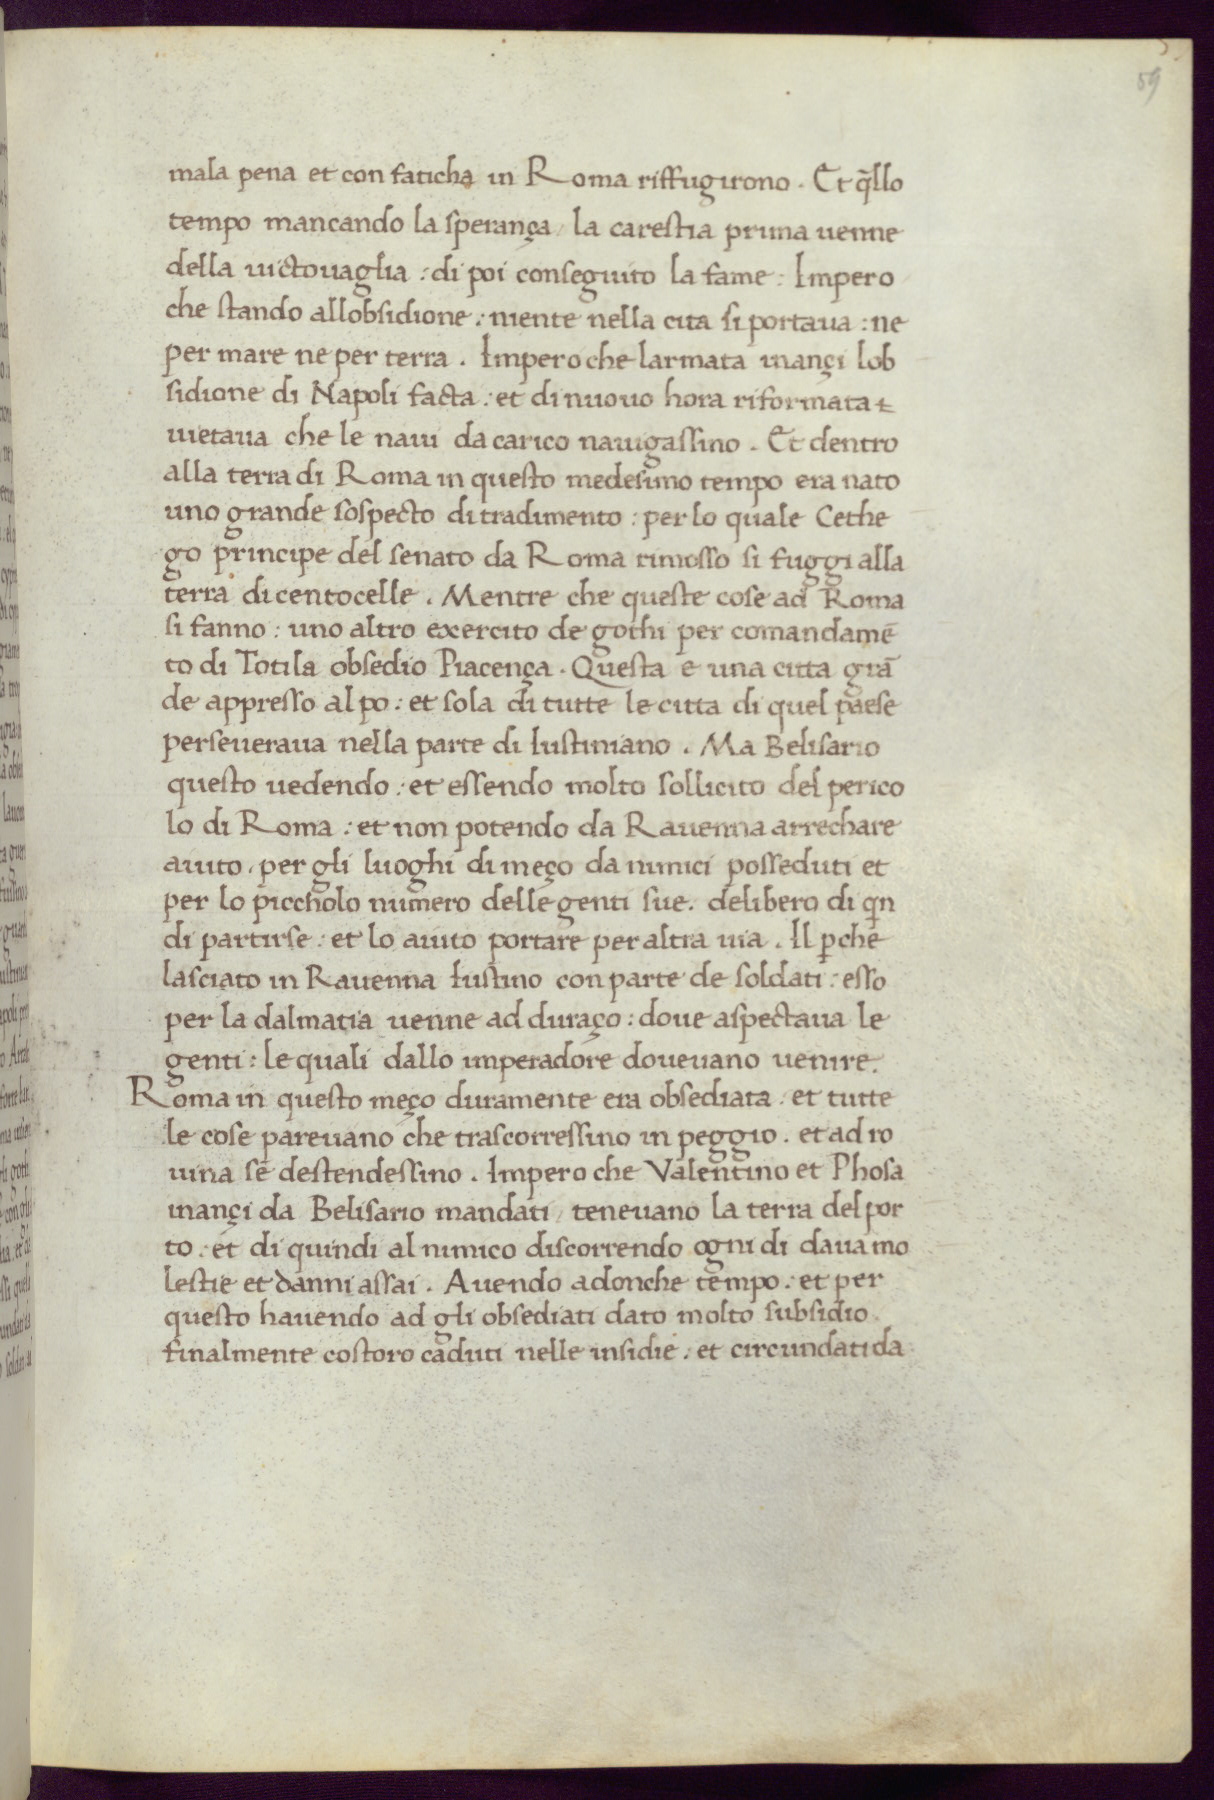 59
mala pena et con faticha in Roma riffugirono. Et q̄llo
tempo mancando la sperança / la carestia prima uenne
della uictouaglia : di poi conseguito la fame : Impero
che stando allobsidione : niente nella cita si portaua : ne
per mare ne per terra . Impero che larmata inançi lob
sidione di Napoli facta : et di nuouo hora riformata
uietaua che le naui da carico nauigassino . Et dentro
alla terra di Roma in questo medesimo tempo era nato
uno grande sospecto di tradimento : per lo quale Cethe
go principe del senato da Roma rimosso si fuggi alla
terra di centocelle . Mentre che queste cose ad Roma
si fanno : uno altro exercito de gothi per comandamē
to di Totila obsedio Piacença . Questa e una citta grā
de appresso al po : et sola di tutte le citta di quel paese
perseueraua nella parte di Iustiniano . Ma Belisario
questo uedendo : et essendo molto sollicito del perico
lo di Roma : et non potendo da Rauenna arrechare
aiuto , per gli luoghi di meço da nimici posseduti et
per lo piccholo numero delle genti sue . delibero di qn
di partirse : et lo aiuto portare per altra uia . Il p̱che
lasciato in Rauenna Iustino con parte de soldati : esso
per la dalmatia uenne ad duraço : doue aspectaua le
genti : le quali dallo imperadore doueuano uenire .
Roma in questo meço duramente era obsediata : et tutte
le cose pareuano che trascorressino in peggio . et ad ro
uina se destendessino . Impero che Valentino et Phosa
inançi da Belisario mandati / teneuano la terra del por
to : et di quindi al nimico discorrendo ogni di daua mo
lestie et danni assai . Auendo adonche tempo : et per
questo hauendo ad gli obsediati dato molto subsidio .
finalmente costoro caduti nelle insidie : et circundati da